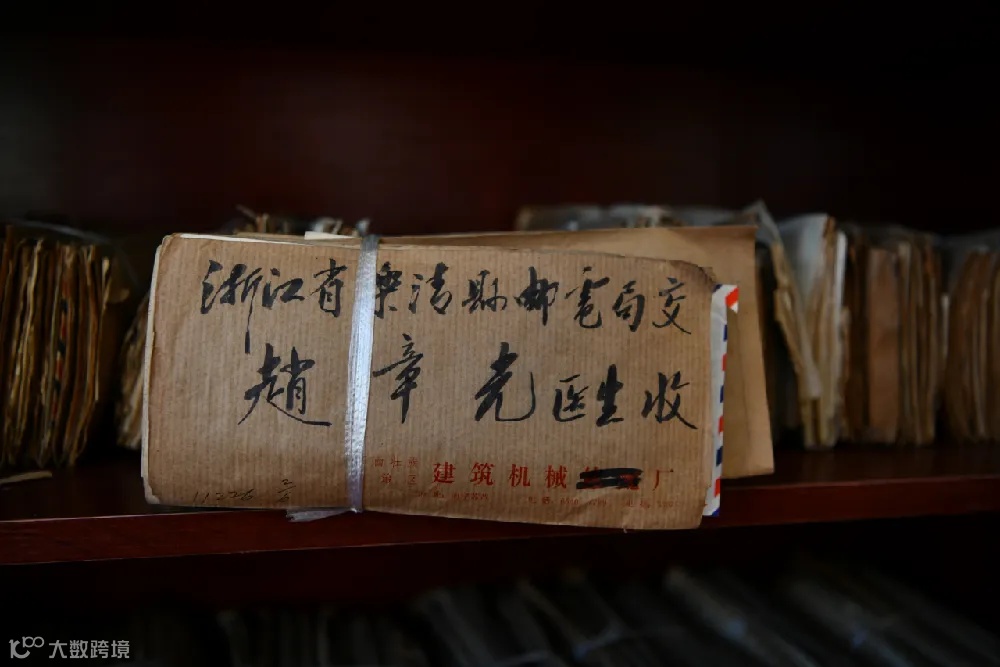 浙江省樂清縣邮電局交
趙章光医生收
建筑机械厂
大数跨境